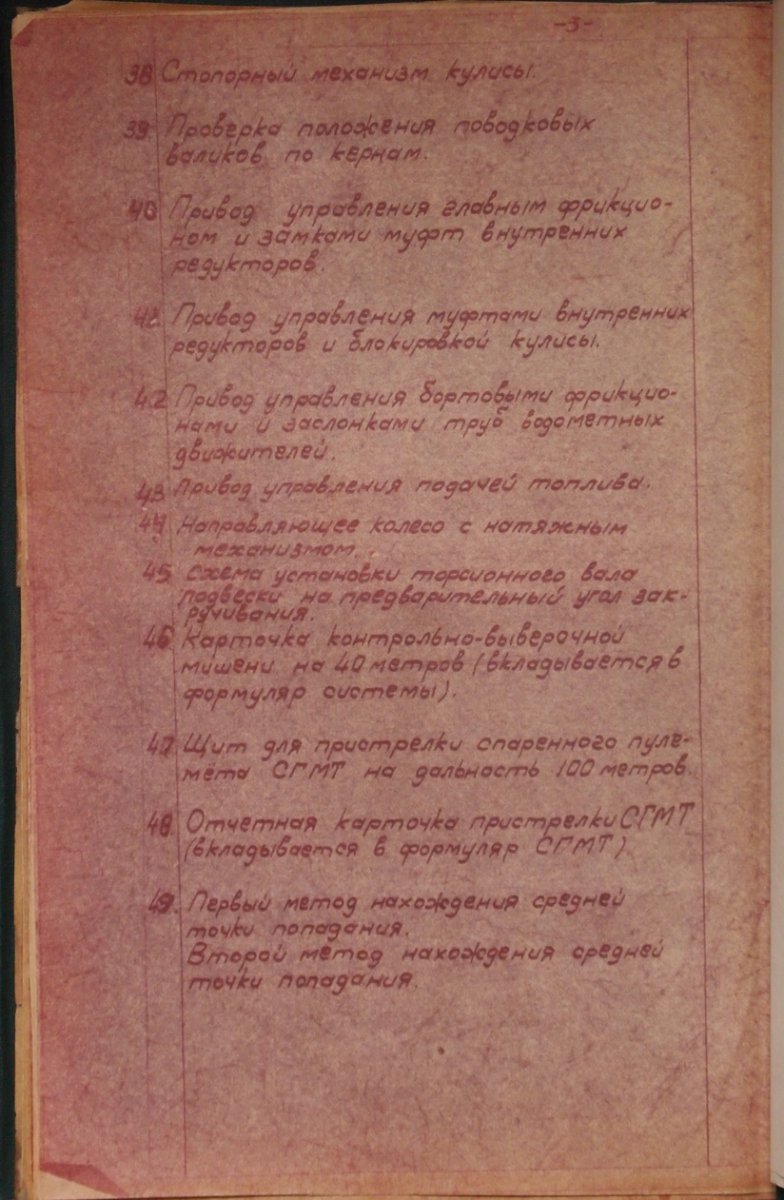 -3-
38 Стопорный механизм кулисы.
39 Проверка положения поводковых
валиков по кернам.
40 Привод управления главным фрикцио-
ном и замками муфт внутренних
редукторов.
41 Привод управления муфтами внутренних
редукторов и блокировкой кулисы.
42 Привод управления бортовыми фрикцио-
нами и заслонками труб водометных
движителей.
43 Привод управления подачей топлива.
44 Направляющее колесо с натяжным
механизмом.
45 Схема установки торсионного вала
подвески на предварительный угол зак-
ручивания.
46 Карточка контрольно-выверочной
мишени на 40 метров (вкладывается в
формуляр системы).
47 Щит для пристрелки спаренного пуле-
мёта СГМТ на дальность 100 метров.
48. Отчетная карточка пристрелки СГМТ
(вкладывается в формуляр СГМТ)
49. Первый метод нахождения средней
точки попадания.
Второй метод нахождения средней
точки попадания.